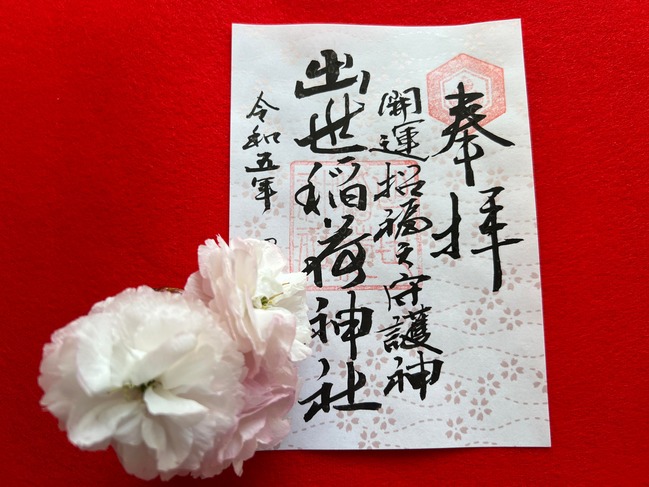 奉拝
開運招福之守護神
出世稲荷神社
令和五年